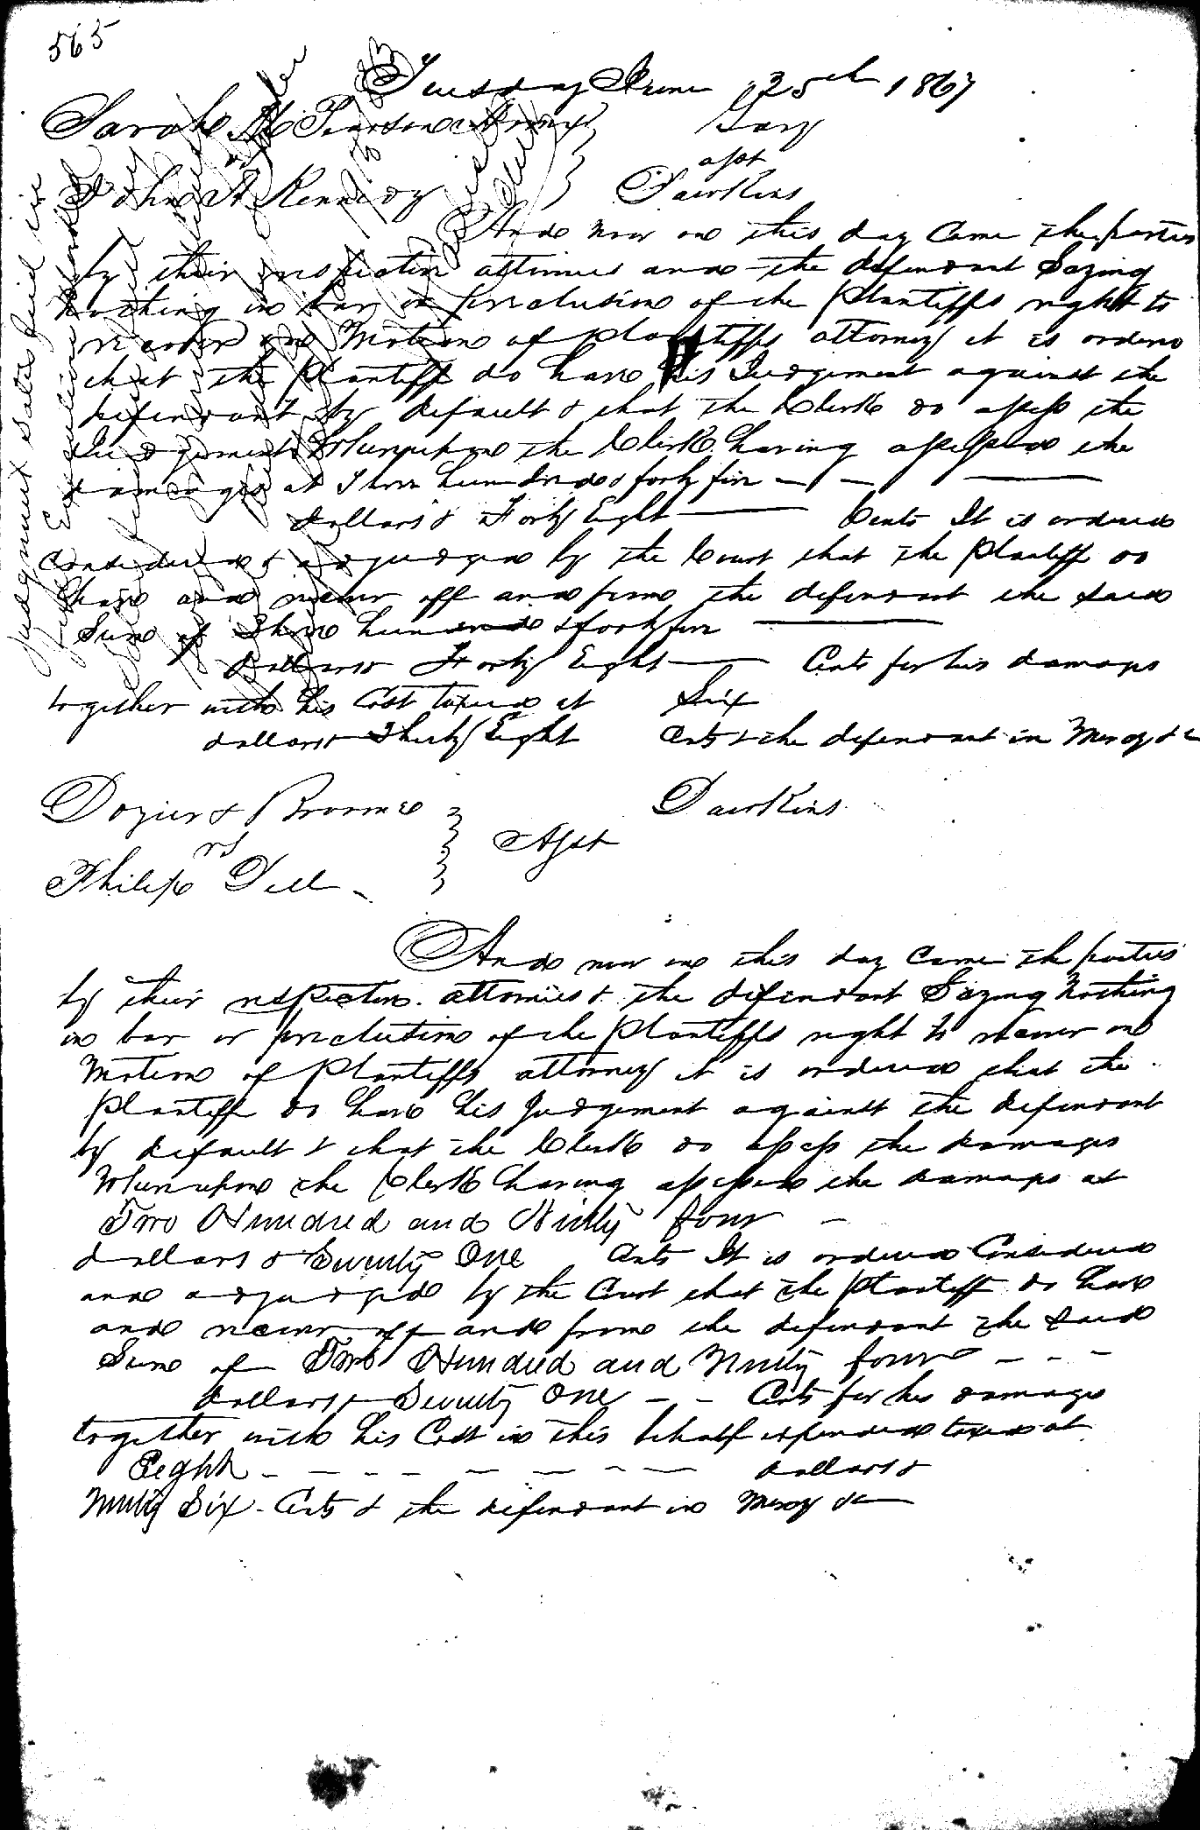 565
Tuesday June 25th 1867
Sarah H Pearson Admx } Gary
vs } apt
John A Kennedy } Dawkins
And now on this day Came the parties
by their respective attornies and the defendant Saying
Nothing in bar or preclusion of the Plantiffs right to
recover on Motion of plantiffs attorney it is orderd
that the Plantiff do have his Judgement against the
defendant by default & that the Clerk do assess the
Judgement Whereupon the Clerk having assessed the
damages at Three hundred & forty five — — —
dollars & Forty Eight — Cents It is ordered
Considered & adjudged by the Court that the Plantiff do
have and recover off and from the defendant the said
Sum of Three hundred & forty five —
dollars & Forty Eight — Cents for his damages
together with his Cost taxed at Six
dollars & Thirty Eight Cents & the defendant in Mercy &c
Dozier & Broome } Dawkins
vs } Apt
Philip Dell
And now on this day Came the parties
by their respective attornies & the defendant Saying Nothing
in bar or preclution of the Plantiffs right to recover on
Motion of Plantiffs attorney it is ordered that the
Plantiff do have his Judgement against the defendant
by default & that the Clerk do assess the damages
Whereupon the Clerk having assessed the damages at
Two Hundred and Ninty four —
dollars & Seventy One Cents It is ordered Considered
and adjudged by the Court that the Plantiff do have
and recover off and from the defendant the said
Sum of Two Hundred and Ninty four - - -
dollars & Seventy One - - Cents for his damages
together with his Cost in this behalf expended taxed at
Eight - - - - - - - - dollars &
Ninty Six - Cents & the defendant in Mercy &c
Judgment satisfied in